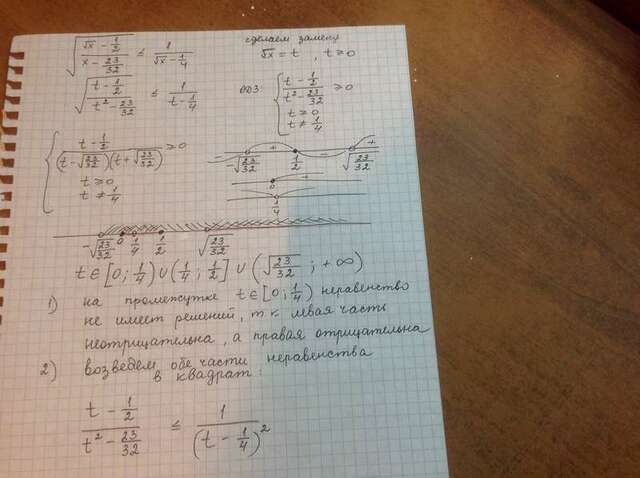 √((√x - 1/2)/(x - 23/32)) ≤ 1/(√x - 1/4)
сделаем замену
√x = t , t ≥ 0
√((t - 1/2)/(t² - 23/32)) ≤ 1/(t - 1/4)
ОДЗ: { (t - 1/2)/(t² - 23/32) ≥ 0
t ≥ 0
t ≠ 1/4
{ (t - 1/2)/((t - √(23/32))(t + √(23/32))) ≥ 0
t ≥ 0
t ≠ 1/4
- + - +
-√(23/32) 1/2 √(23/32)
0
1/4
-√(23/32) 0 1/4 1/2 √(23/32)
t ∈ [0; 1/4) ∪ (1/4; 1/2] ∪ (√(23/32) ; +∞)
1) на промежутке t ∈ [0; 1/4) неравенство
не имеет решений, т к левая часть
неотрицательна, а правая отрицательна
2) возведем обе части неравенства
в квадрат:
(t - 1/2)/(t² - 23/32) ≤ 1/(t - 1/4)²